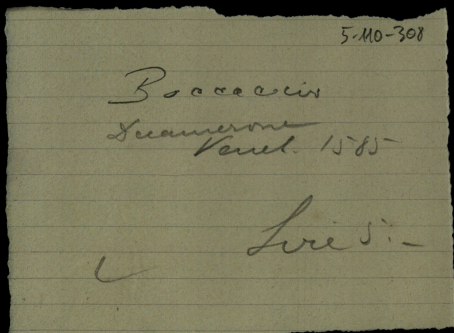 5-110-308
Boccaccio
Decamerone
Venet. 1585
Lire 5.-